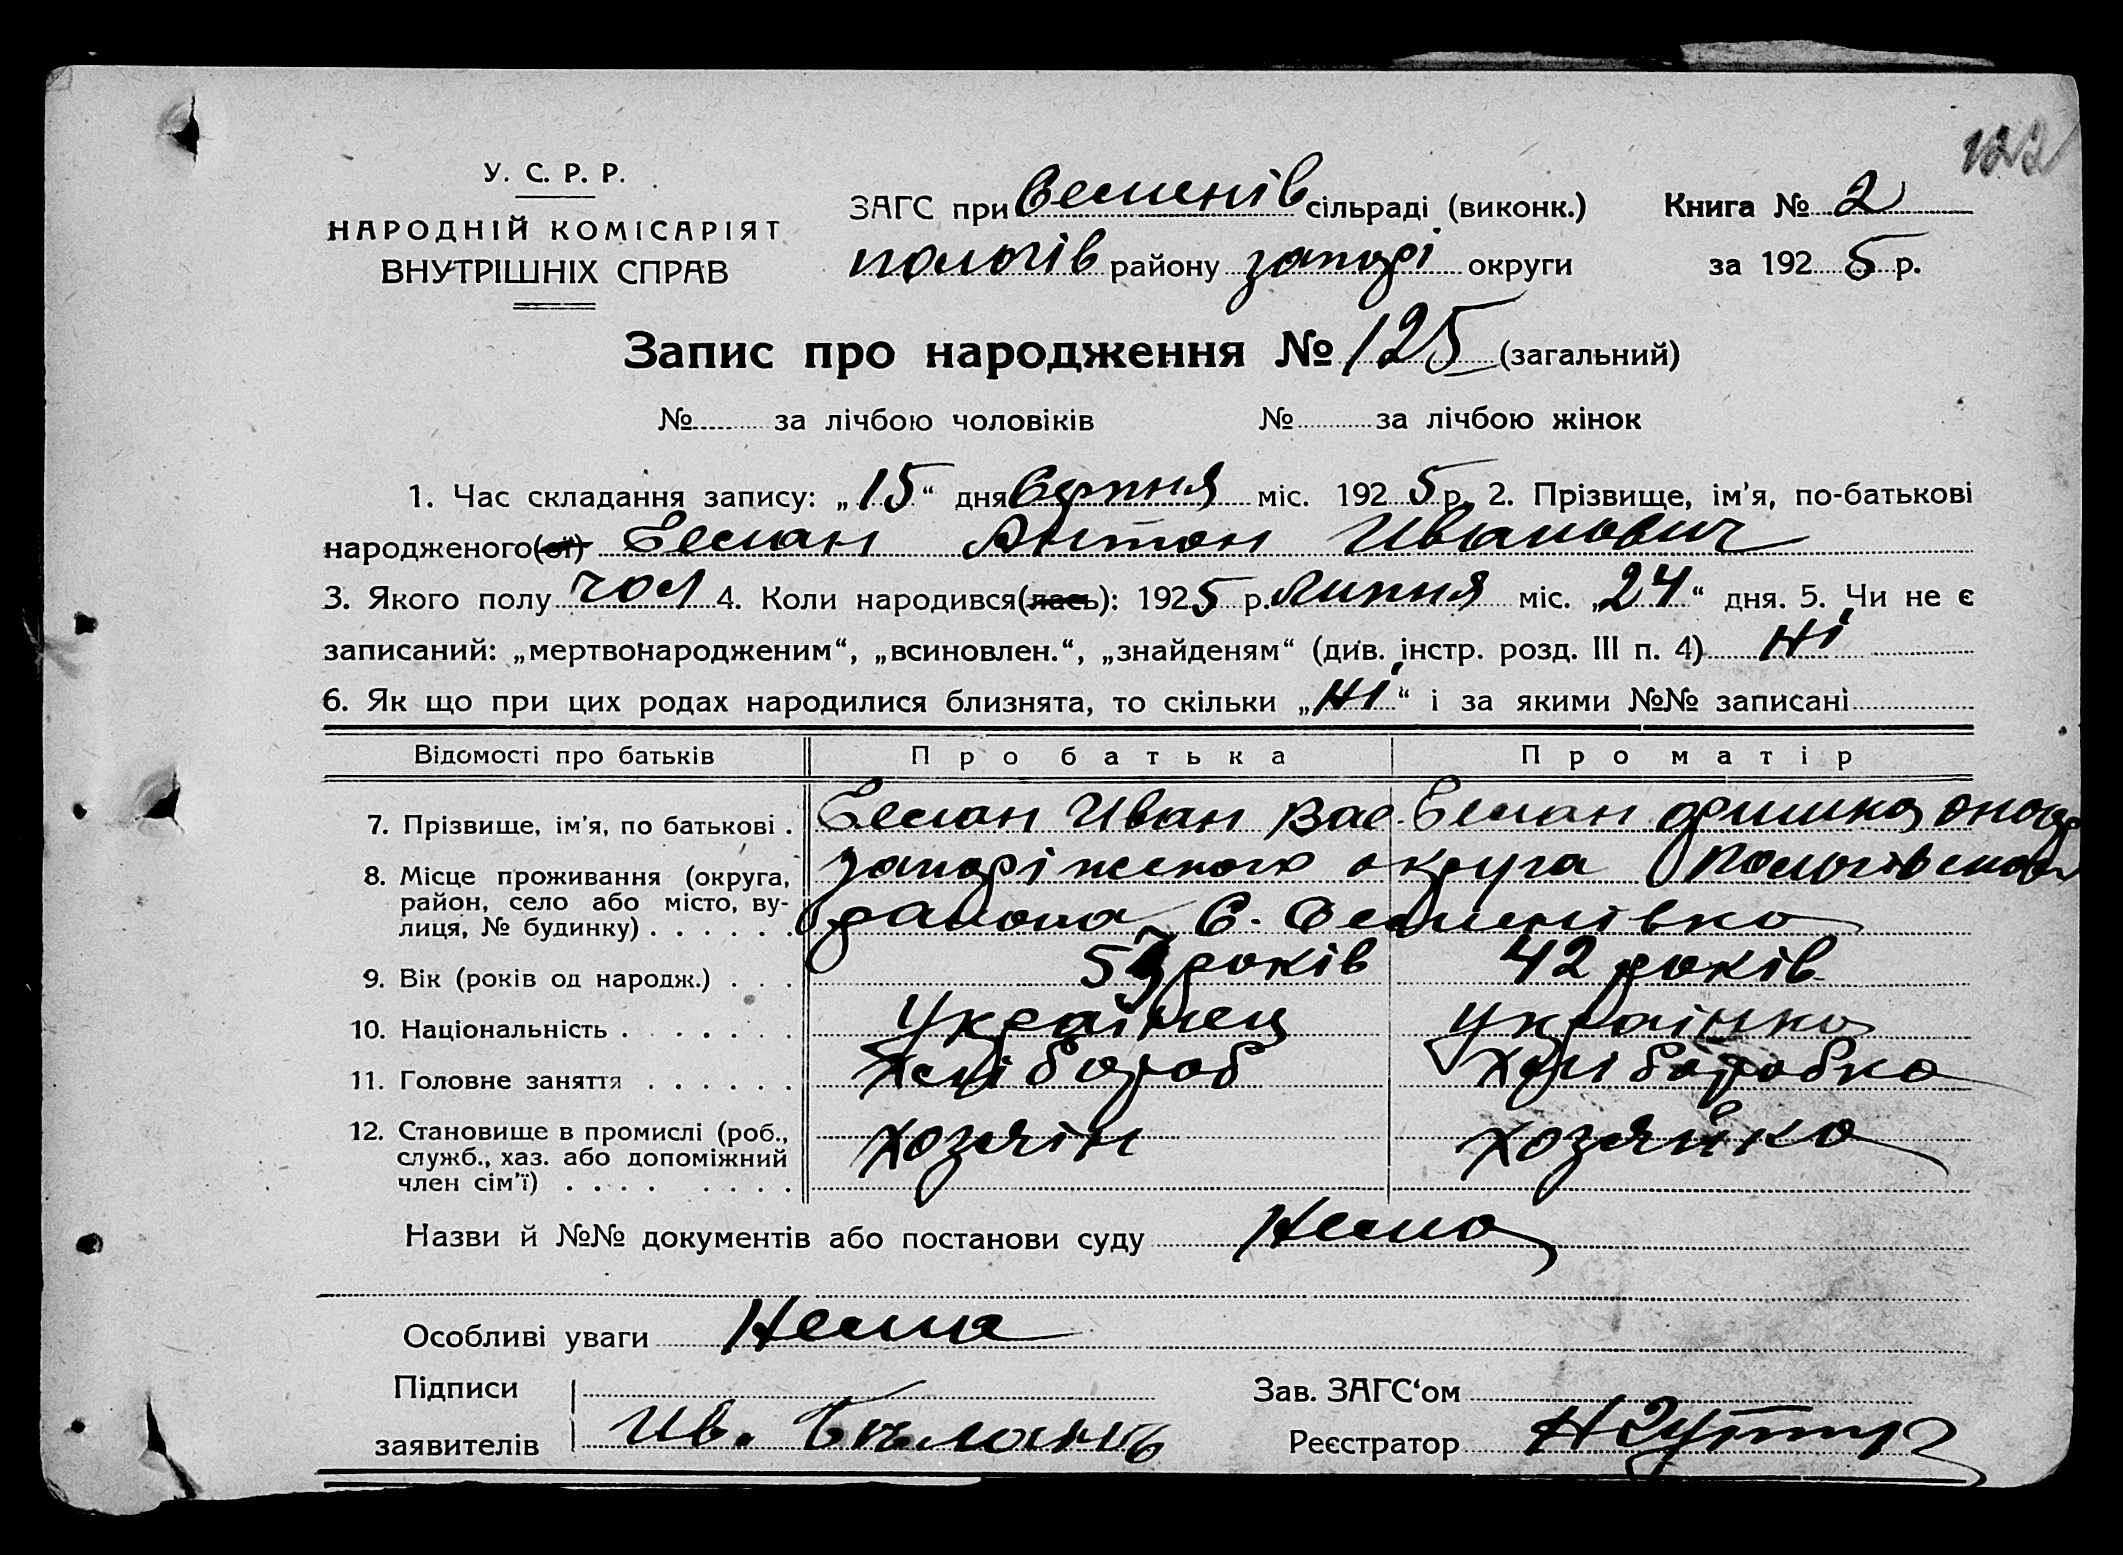 122
У. С. Р. Р.
НАРОДНІЙ КОМІСАРІЯТ
ВНУТРІШНІХ СПРАВ
ЗАГС при Семенів сільраді (виконк.)
пологів району запорі округи
Книга № 2
за 1925 р.
Запис про народження № 125 (загальний)
№ за лічбою чоловіків № за лічбою жінок
1. Час складання запису: „15“ дня Серпня міс. 1925 р. 2. Прізвище, ім’я, по-батькові
народженого(ої) Антон Иванович
3. Якого полу чол 4. Коли народився(лась): 1925 р. Липня міс. „24“ дня. 5. Чи не є
записаний: „мертвонародженим“, „всиновлен.“, „знайденям“ (див. інстр. розд. III п. 4) Ні
6. Як що при цих родах народилися близнята, то скільки „Ні“ і за якими №№ записані
Відомості про батьків Про батька Про матір
7. Прізвище, ім’я, по батькові . Иван Вас.
8. Місце проживання (округа,
район, село або місто, ву-
лиця, № будинку) . . . . . .
запоріжского округа Пологівского
района С. Семенівка
9. Вік (років од народж.) . . . років 42 років
10. Національність . . . . . . . Українец Українка
11. Головне заняття . . . . . . Хлібороб Хліборобка
12. Становище в промислі (роб.,
служб., хаз. або допоміжний
член сім’ї) . . . . . . . .
хозяін хозяйка
Назви й №№ документів або постанови суду Нема
Особливі уваги Нема
Підписи
заявителів Ив.
Зав. ЗАГС‘ом
Реєстратор